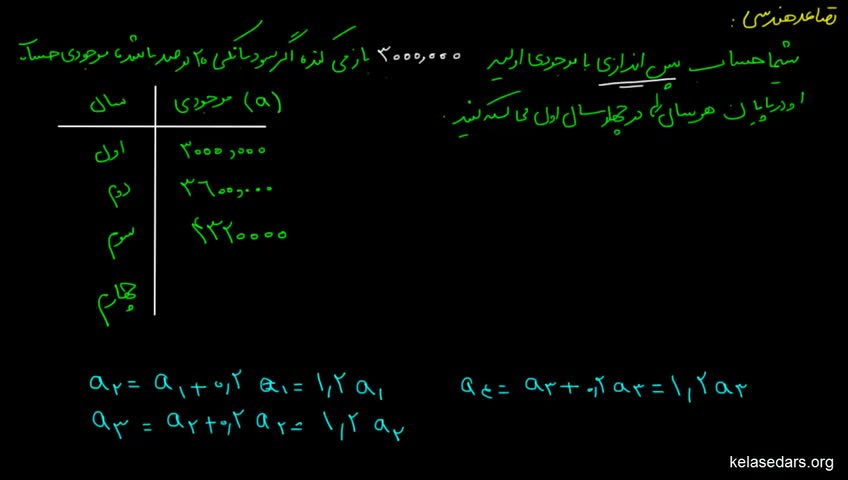 تصاعد هندسی :
شیما حساب پس اندازی با موجودی اولیه ۳۰۰۰,۰۰۰ باز می کند، اگر سود بانکی ۲۰ درصد باشد، موجودی حساب
او در پایان هر سال را در چهار سال اول محاسبه کنید .
سال موجودی (a)
اول ۳۰۰۰,۰۰۰
دوم ۳۶۰۰,۰۰۰
سوم ۴۳۲۰۰۰۰
چهارم
a₂ = a₁ + ۰,۲ a₁ = ۱,۲ a₁
a₃ = a₂ + ۰,۲ a₂ = ۱,۲ a₂
a₄ = a₃ + ۰,۲ a₃ = ۱,۲ a₃
kelasedars.org